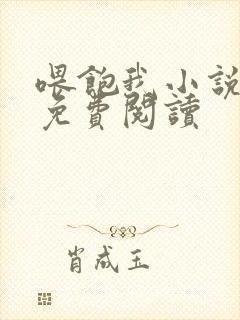 喂飽我小說
免費閱讀
肖成玉